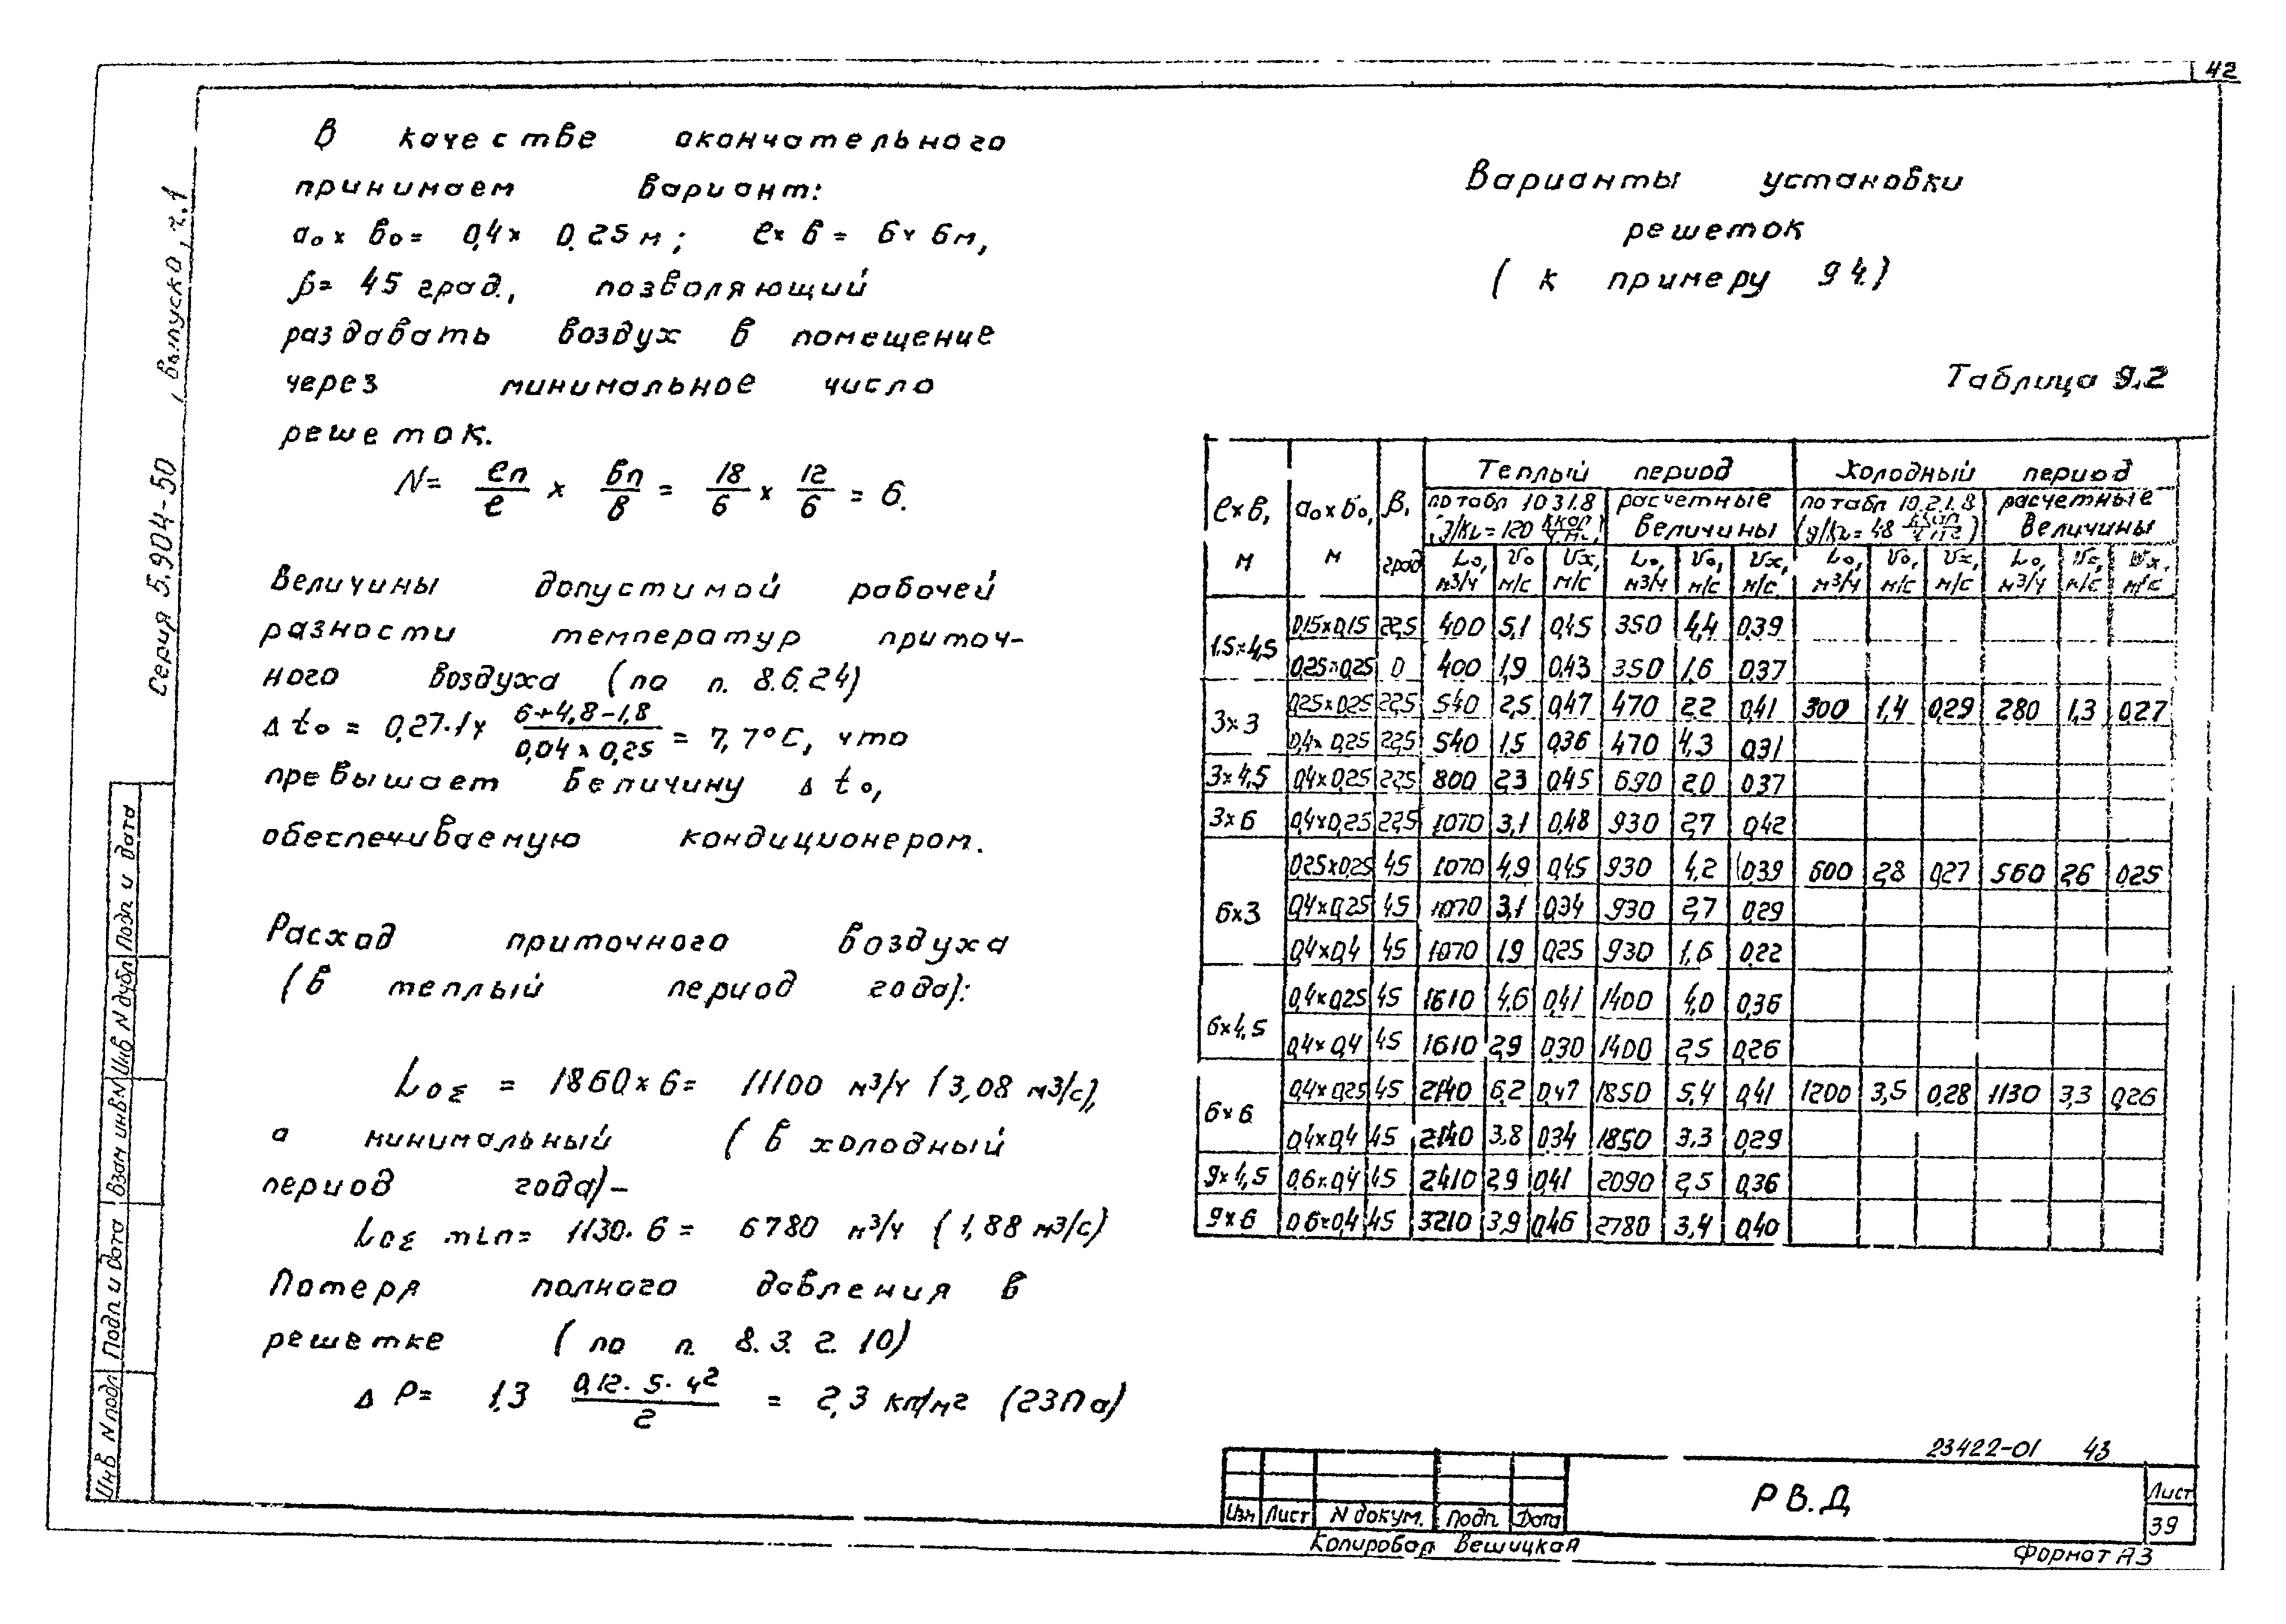 42
В качестве окончательного
принимаем вариант:
a₀ x в₀ = 0,4 x 0.25 м; ℓ x в = 6 x 6 м,
β = 45 град., позволяющий
раздавать воздух в помещение
через минимальное число
решеток.
N = ℓп/ℓ x вп/в = 18/6 x 12/6 = 6.
Величины допустимой рабочей
разности температур приточ-
ного воздуха (по п. 8.6.24)
Δ t₀ = 0,27·1 x (6+4,8-1,8)/(0,04 x 0,25) = 7,7°С, что
превышает величину Δ t₀,
обеспечиваемую кондиционером.
Расход приточного воздуха
(в теплый период года):
L₀Σ = 1860 x 6 = 11100 м3/ч (3,08 м3/с),
а минимальный (в холодный
период года)-
L₀Σ min = 1130·6 = 6780 м3/ч (1,88 м3/с)
Потеря полного давления в
решетке (по п. 8.3.2.10)
Δ P = 1.3 (0,12·5·4²)/2 = 2,3 кп/м2 (23Па)
Варианты установки
решеток
(к примеру 94.)
Таблица 9.2
ℓ x в, м | a₀ x в₀, м | β, град | Теплый период | Холодный период
по табл 10 31.8 (Я/KL = 120 ккал/ч.м2) | расчетные величины | по табл 10.2.1.8 (Я/KL = 48 ккал/ч м2) | расчетные величины
L₀, м3/ч | V₀ м/с | Vx, м/с | L₀, м3/ч | V₀, м/с | Vx, м/с | L₀, м3/ч | V₀, м/с | Vx, м/с | L₀, м3/ч | V₀, м/с | Vx, м/с
1.5 x 4,5 | 0,15 x 0,15 | 22,5 | 400 | 5,1 | 0,45 | 350 | 4,4 | 0,39
0,25 x 0,25 | 0 | 400 | 1,9 | 0,43 | 350 | 1,6 | 0,37
3 x 3 | 0,25 x 0,25 | 22,5 | 540 | 2,5 | 0,47 | 470 | 2,2 | 0,41 | 300 | 1,4 | 0,29 | 280 | 1,3 | 0,27
0,4 x 0,25 | 22,5 | 540 | 1,5 | 0,36 | 470 | 4,3 | 0,31
3 x 4,5 | 0,4 x 0,25 | 22,5 | 800 | 2,3 | 0,45 | 690 | 2,0 | 0,37
3 x 6 | 0,4 x 0,25 | 22,5 | 1070 | 3,1 | 0,48 | 930 | 2,7 | 0,42
6 x 3 | 0,25 x 0,25 | 45 | 1070 | 4,9 | 0,45 | 930 | 4,2 | 0,39 | 600 | 2,8 | 0,27 | 560 | 2,6 | 0,25
0,4 x 0,25 | 45 | 1070 | 3,1 | 0,34 | 930 | 2,7 | 0,29
0,4 x 0,4 | 45 | 1070 | 1,9 | 0,25 | 930 | 1,6 | 0,22
6 x 4,5 | 0,4 x 0,25 | 45 | 1610 | 4,6 | 0,41 | 1400 | 4,0 | 0,36
0,4 x 0,4 | 45 | 1610 | 2,9 | 0,30 | 1400 | 2,5 | 0,26
6 x 6 | 0,4 x 0,25 | 45 | 2140 | 6,2 | 0,47 | 1850 | 5,4 | 0,41 | 1200 | 3,5 | 0,28 | 1130 | 3,3 | 0,26
0,4 x 0,4 | 45 | 2140 | 3,8 | 0,34 | 1850 | 3.3 | 0,29
9 x 4,5 | 0,6 x 0,4 | 45 | 2410 | 2,9 | 0,41 | 2090 | 2,5 | 0,36
9 x 6 | 0,6 x 0,4 | 45 | 3210 | 3,9 | 0,46 | 2780 | 3,4 | 0,40
Серия 5.904-50 , выпуск 0, ч.1
Инв N подл | Подп и дата | Взам инв N | Инв N дубл | Подп и дата
23422-01 43
Изм | Лист | N докум. | Подп | Дата
РВ.Д
Лист
39
Копировал Вешицкая
Формат А3